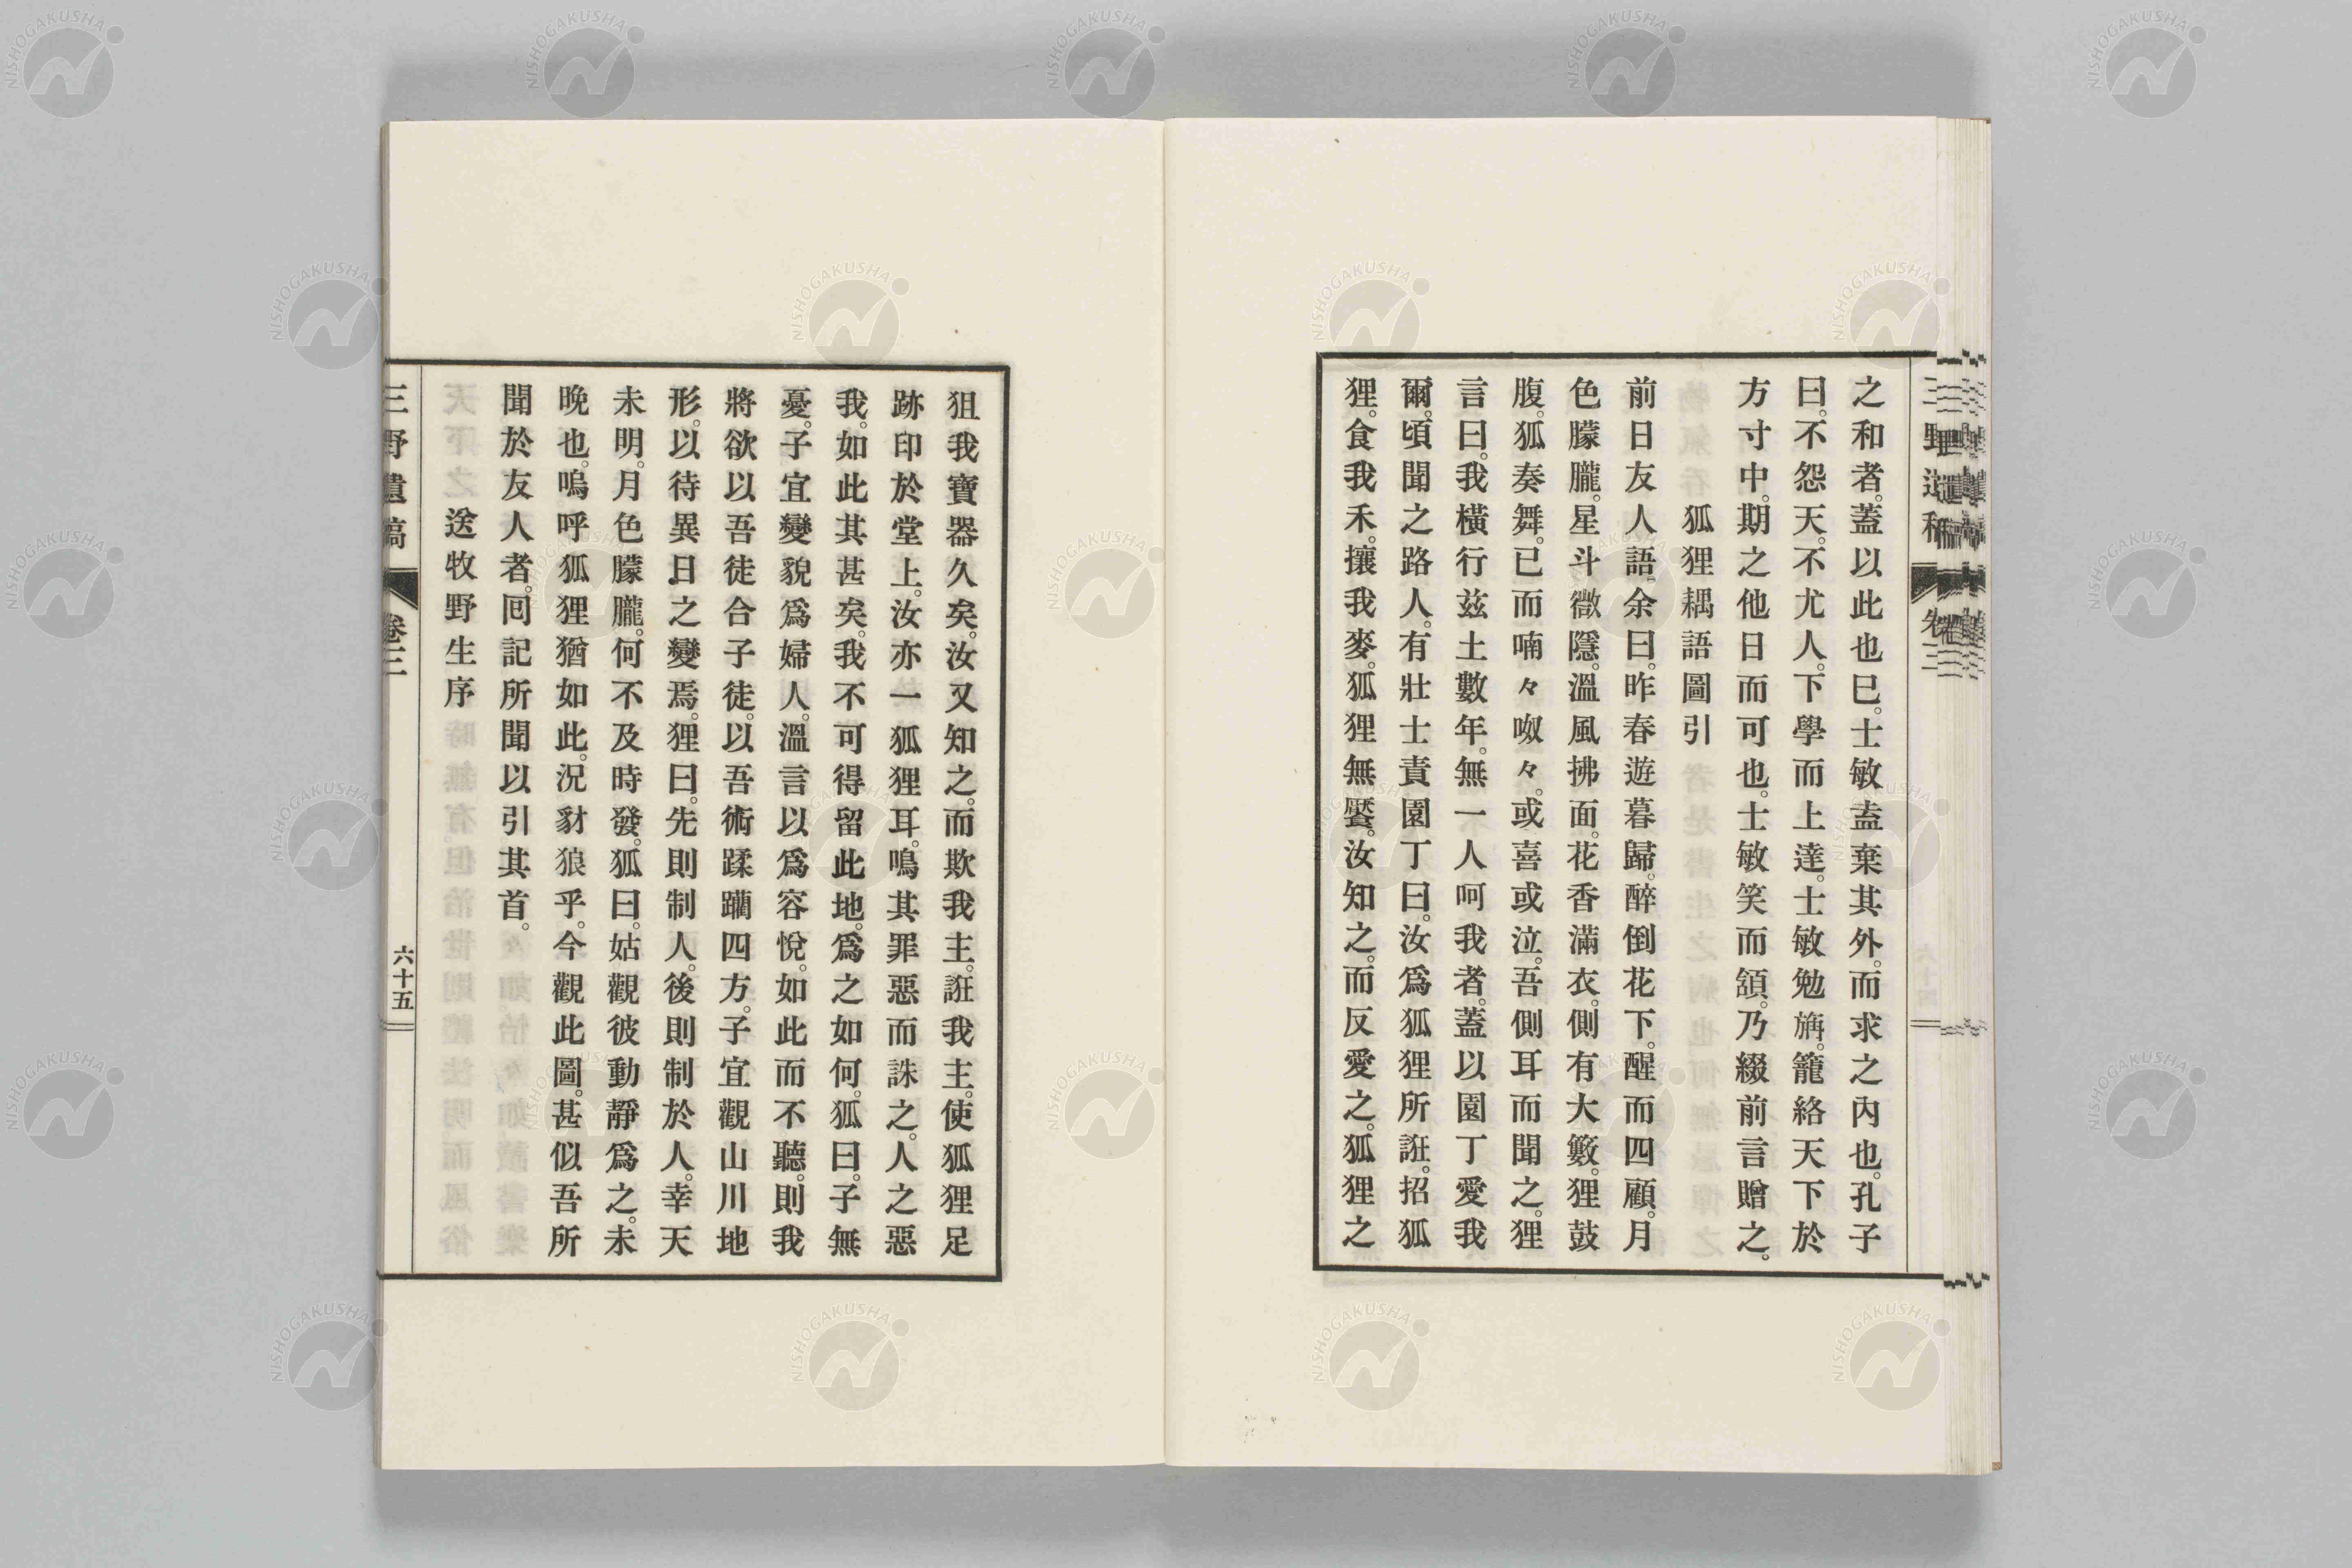 之和者。蓋以此也巳。士敏盍棄其外。而求之內也。孔子
曰。不怨天。不尤人。下學而上達。士敏勉旃。籠絡天下於
方寸中。期之他日而可也。士敏笑而頷。乃綴前言贈之。
狐狸耦語圖引
前日友人語余曰。昨春遊暮歸。醉倒花下。醒而四顧。月
色朦朧。星斗微隱。溫風拂面。花香滿衣。側有大籔。狸鼓
腹。狐奏舞。已而喃々呶々。或喜或泣。吾側耳而聞之。狸
言曰。我橫行茲土數年。無一人呵我者。蓋以園丁愛我
爾。頃聞之路人。有壯士責園丁曰。汝爲狐狸所誑。招狐
狸。食我禾。攘我麥。狐狸無饜。汝知之。而反愛之。狐狸之
狙我寶器久矣。汝又知之。而欺我主。誑我主。使狐狸足
跡印於堂上。汝亦一狐狸耳。鳴其罪惡而誅之。人之惡
我。如此其甚矣。我不可得留此地。爲之如何。狐曰。子無
憂。子宜變貌爲婦人。溫言以爲容悅。如此而不聽。則我
將欲以吾徒合子徒。以吾術蹂躪四方。子宜觀山川地
形。以待異日之變焉。狸曰。先則制人。後則制於人。幸天
未明。月色朦朧。何不及時發。狐曰。姑觀彼動靜爲之。未
晚也。嗚呼狐狸猶如此。況豺狼乎。今觀此圖。甚似吾所
聞於友人者。囘記所聞以引其首。
送牧野生序
三野遺稿 卷三 六十五
NISHOGAKUSHA